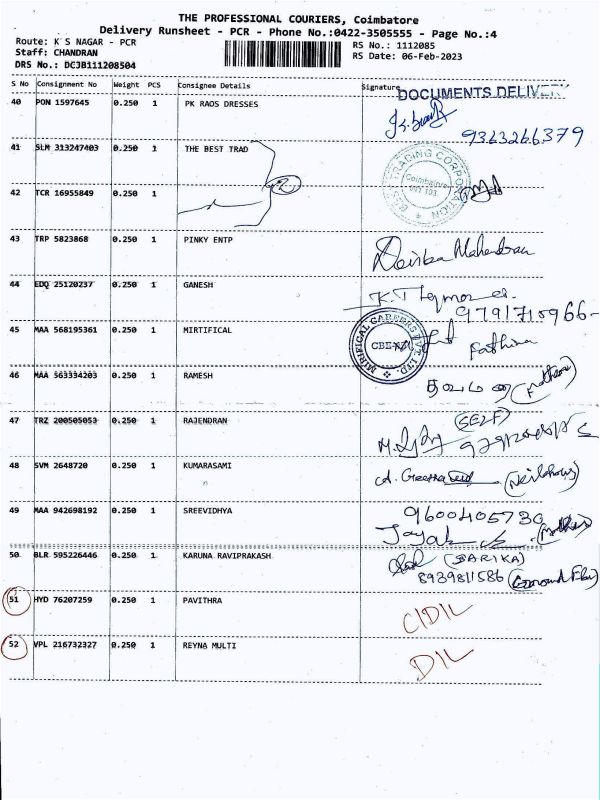 THE PROFESSIONAL COURIERS, Coimbatore
Delivery Runsheet - PCR - Phone No.:0422-3505555 - Page No.:4
Route: K S NAGAR - PCR RS No.: 1112085
Staff: CHANDRAN RS Date: 06-Feb-2023
DRS No.: DCJB111208504
S No Consignment No Weight PCS Consignee Details Signature DOCUMENTS DELIVERY
40 PON 1597645 0.250 1 PK RAOS DRESSES
9363266379
41 SLM 313247403 0.250 1 THE BEST TRAD
TRADING CORPORATION
Coimbatore
42 TCR 16955849 0.250 1
43 TRP 5823868 0.250 1 PINKY ENTP
Mahendran
44 EDQ 25120237 0.250 1 GANESH
9791715966
45 MAA 568195361 0.250 1 MIRTIFICAL
MIRIFICAL CAREERS PVT. LTD.
Fathima
46 MAA 563334203 0.250 1 RAMESH
(mother)
47 TRZ 200505053 0.250 1 RAJENDRAN
(SELF)
48 SVM 2648720 0.250 1 KUMARASAMI
49 MAA 942698192 0.250 1 SREEVIDHYA
9600405730
50 BLR 595226446 0.250 1 KARUNA RAVIPRAKASH
(SARIKA)
8939811586
51 HYD 76207259 0.250 1 PAVITHRA
CIDIL
52 VPL 216732327 0.250 1 REYNA MULTI
DIL